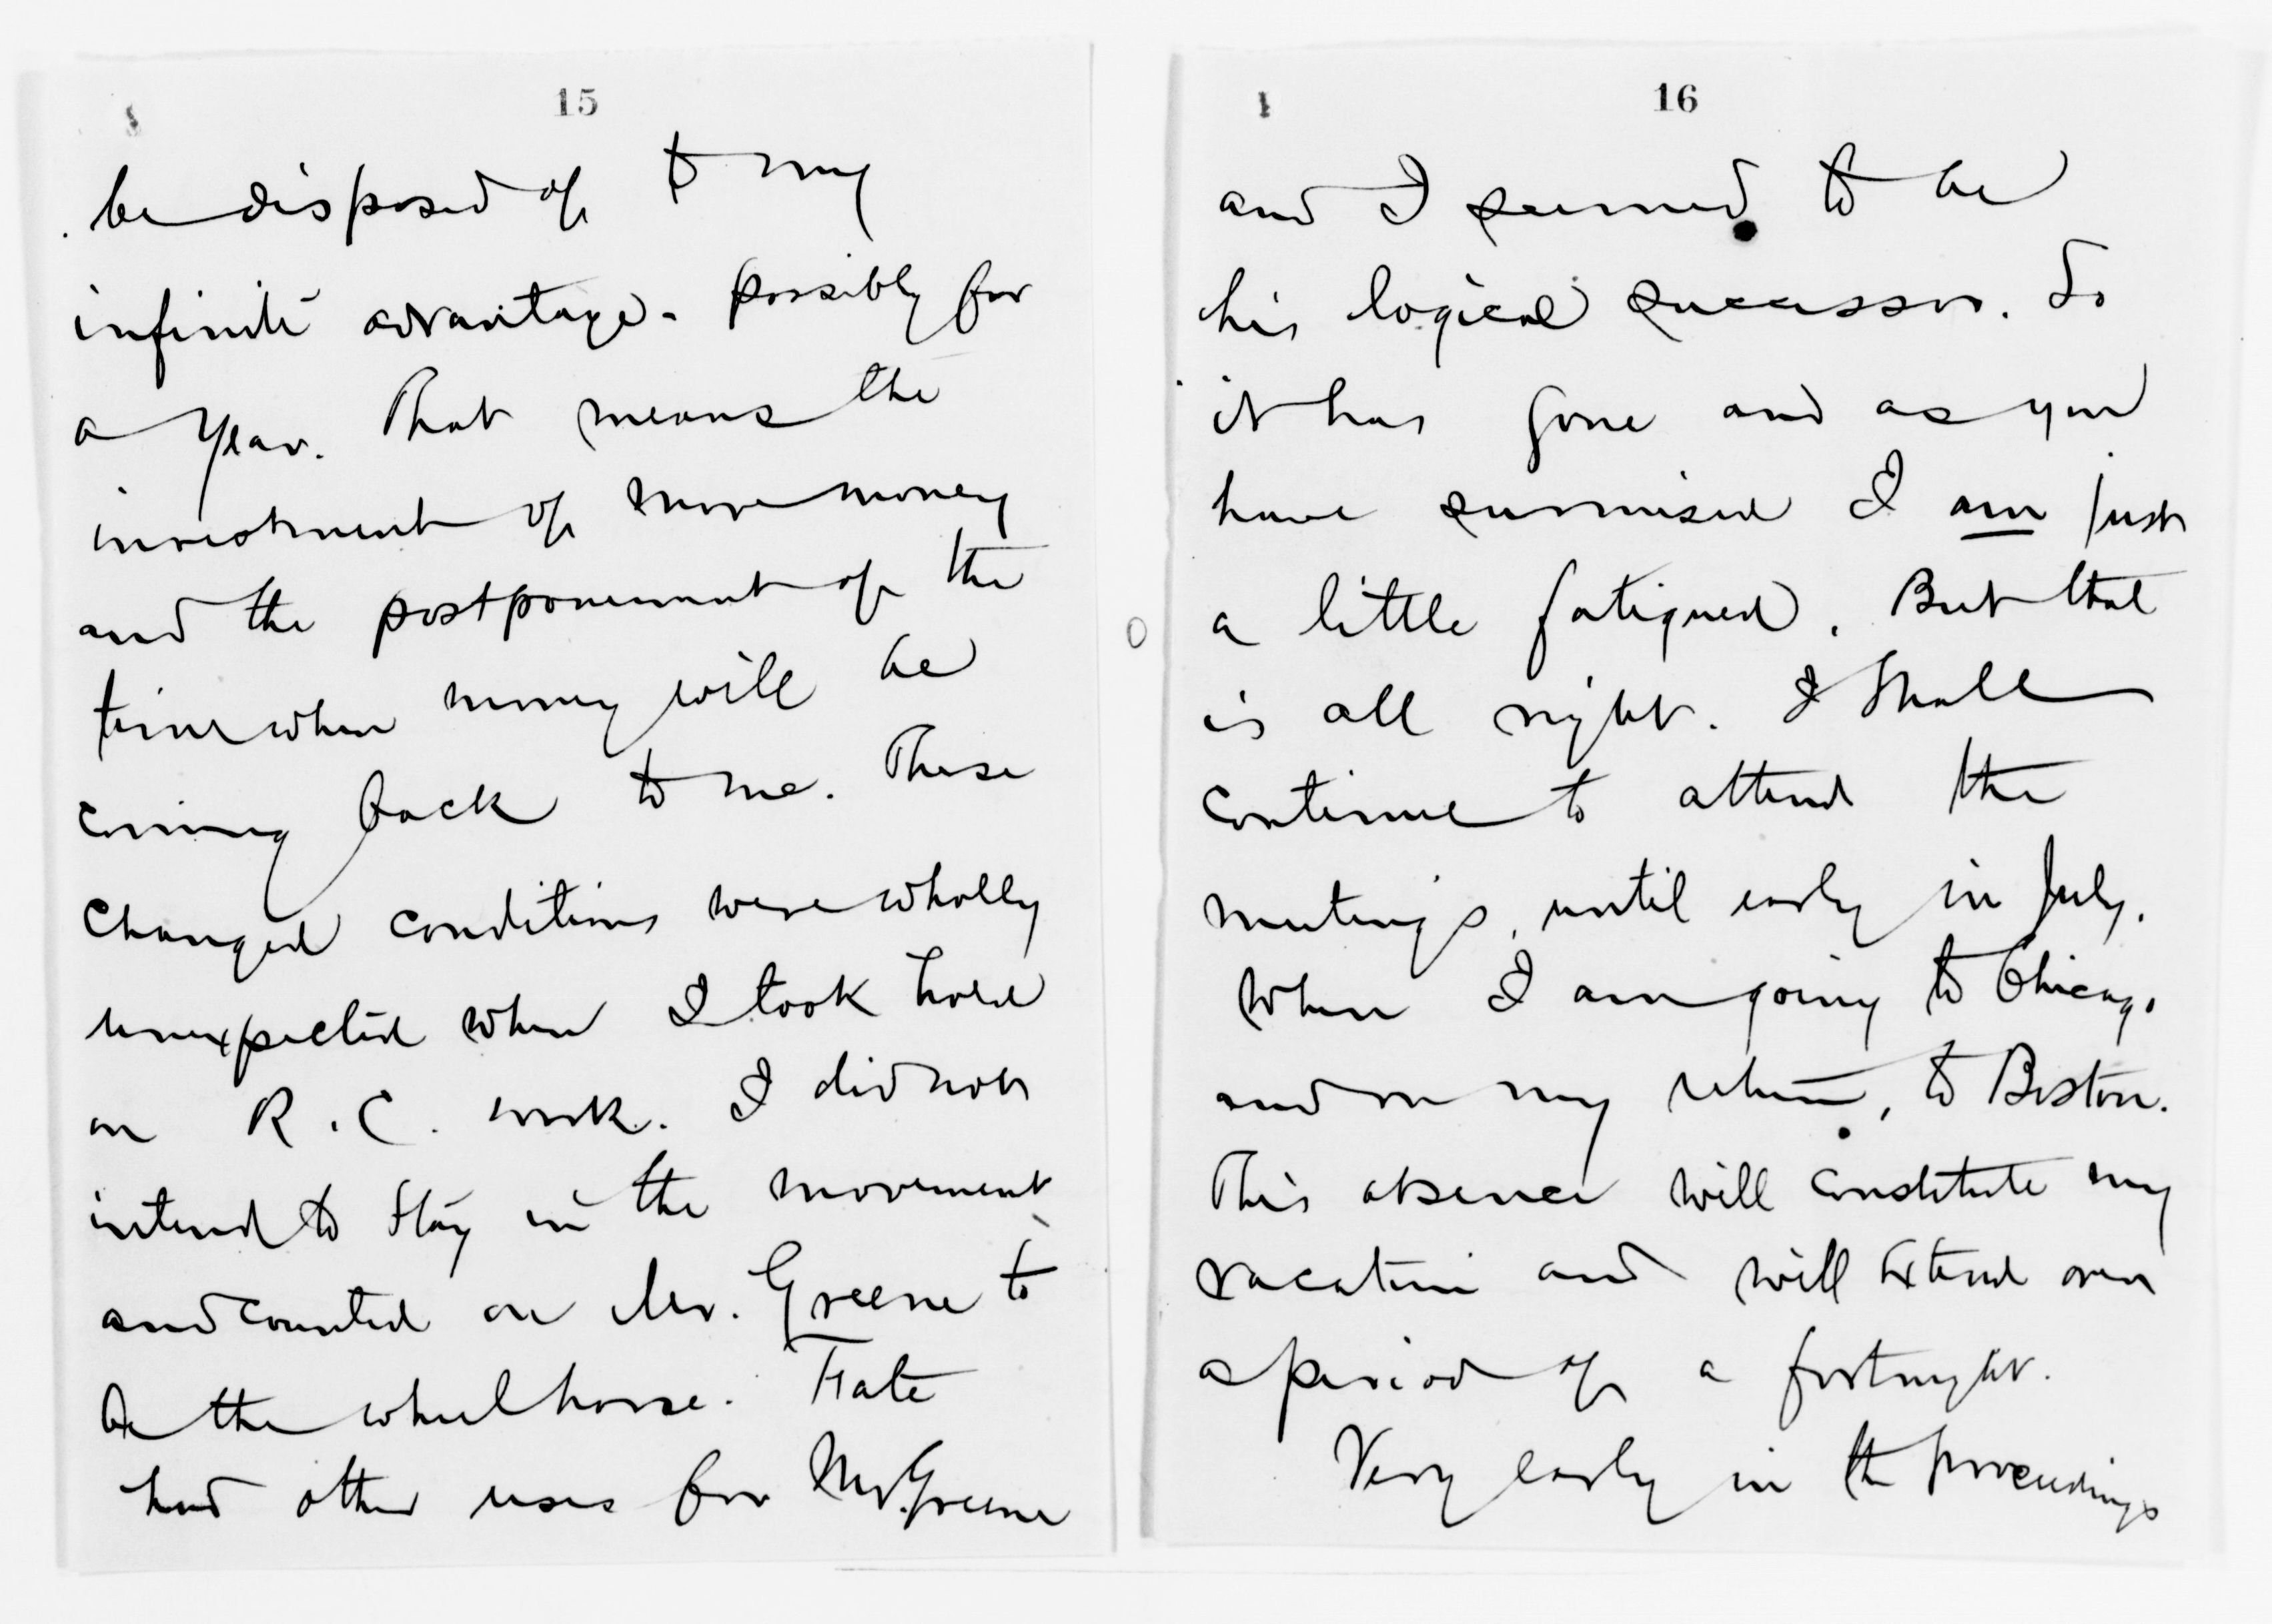 15
be disposed of to my
infinite advantage - possibly for
a year. That means the
investment of more money
and the postponement of the
time when money will be
coming back to me. These
changed conditions were wholly
unexpected when I took hold
on R. C. work. I did not
intend to stay in the movement
and counted on Mr. Greene to
be the wheel horse. Fate
had other uses for Mr. Greene
16
and I seemed to be
his logical successor. So
it has gone and as you
have surmised I am just
a little fatigued. But that
is all right. I shall
continue to attend the
meetings, until early in July,
when I am going to Chicago
and on my return, to Boston.
This absence will constitute my
vacation and will extend over
a period of a fortnight.
Very early in the proceedings